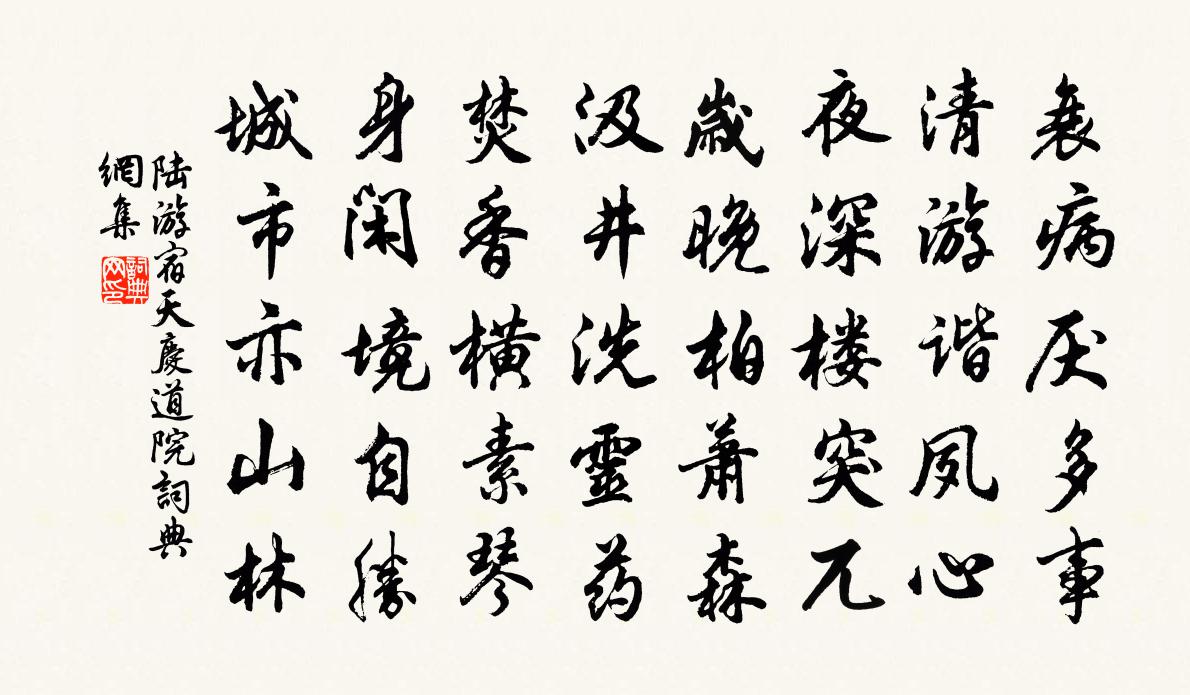 衰病厌多事
清游谐夙心
夜深楼突兀
歲晚柏萧森
汲井洗靈药
焚香横素琴
身闲境自勝
城市亦山林
陆游宿天慶道院詞典
網集
詞典
网印